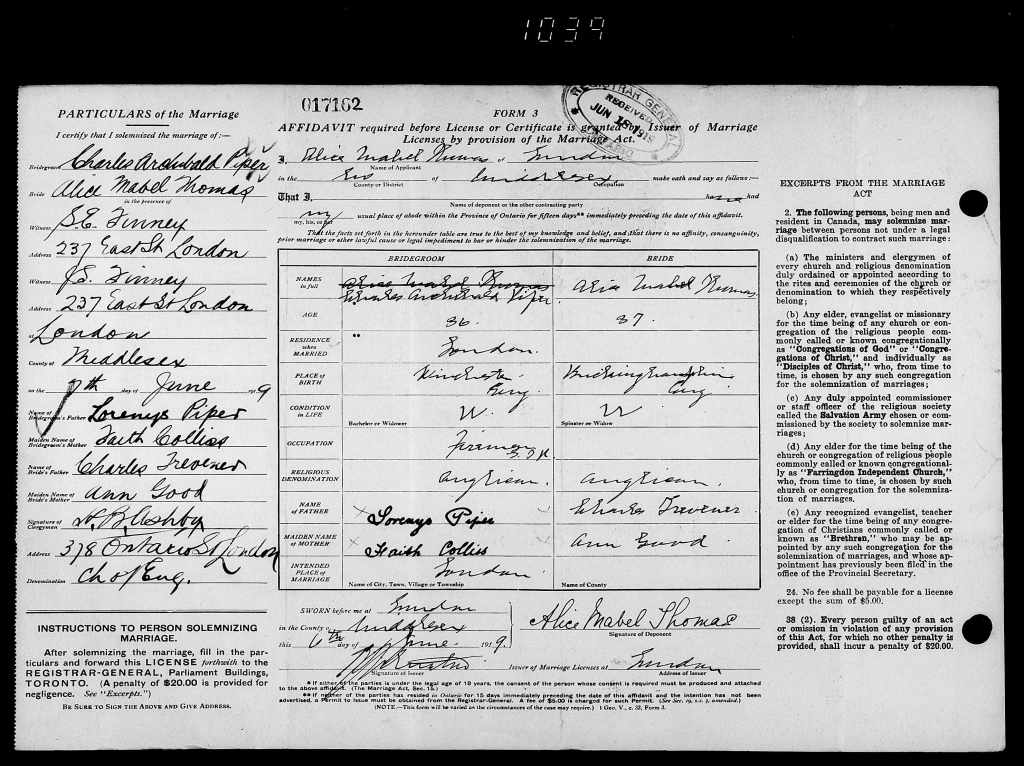 1039
PARTICULARS of the Marriage
I certify that I solemnized the marriage of:—
Bridegroom Charles Archibald Piper
Bride Alice Mabel Thomas
in the presence of
Witness S.E. Finney
Address 237 East St London
Witness J.E. Finney
Address 237 East St London
at London
County of Middlesex
on the 7th day of June 1919
Name of Bridegroom's Father Lorenys Piper
Maiden Name of Bridegroom's Mother Faith Colliss
Name of Bride's Father Charles Trevener
Maiden Name of Bride's Mother Ann Good
Signature of Clergyman H. B. Ashby
Address 378 Ontario St London
Denomination Ch of Eng.
INSTRUCTIONS TO PERSON SOLEMNIZING
MARRIAGE.
After solemnizing the marriage, fill in the par-
ticulars and forward this LICENSE forthwith to the
REGISTRAR-GENERAL, Parliament Buildings,
TORONTO. (A penalty of $20.00 is provided for
negligence. See "Excerpts.")
BE SURE TO SIGN THE ABOVE AND GIVE ADDRESS.
017162
FORM 3
REGISTRAR GENERAL
RECEIVED
JUN 1919
ONTARIO
AFFIDAVIT required before License or Certificate is granted by Issuer of Marriage
Licenses by provision of the Marriage Act.
I, Alice Mabel Thomas of London
Name of Applicant
in the Co of Middlesex make oath and say as follows:—
County or District Occupation
That I,
Name of deponent or the other contracting party
my usual place of abode within the Province of Ontario for fifteen days** immediately preceding the date of this affidavit.
my, his, or her
That the facts set forth in the hereunder table are true to the best of my knowledge and belief, and that there is no affinity, consanguinity,
prior marriage or other lawful cause or legal impediment to bar or hinder the solemnization of the marriage.
BRIDEGROOM BRIDE
NAMES in full Alice Mabel Thomas Charles Archibald Piper Alice Mabel Thomas
AGE 36. 37.
RESIDENCE when MARRIED ** London.
PLACE OF BIRTH Winchester Eng. Eng
CONDITION in LIFE W. W
Bachelor or Widower Spinster or Widow
OCCUPATION Fireman G.T.R
RELIGIOUS DENOMINATION Anglican. Anglican.
NAME OF FATHER Lorenys Piper Charles Trevener
MAIDEN NAME of MOTHER Faith Colliss Ann Good
INTENDED PLACE of MARRIAGE London
Name of City, Town, Village or Township Name of County
SWORN before me at London
in the County of Middlesex
this 6th day of June 1919.
Alice Mabel Thomas
Signature of Deponent
Signature of Issuer
Issuer of Marriage Licenses at London
Address of Issuer
* If either of the parties is under the legal age of 18 years, the consent of the person whose consent is required must be produced and attached
to the above affidavit. (The Marriage Act, Sec. 15.)
** If neither of the parties has resided in Ontario for 15 days immediately preceding the date of this affidavit and the intention has not been
advertised, a Permit to Issue must be obtained from the Registrar-General. A fee of $5.00 is charged for such Permit. (See Sec. 19, s.s. 3, amended.)
(NOTE.—This form will be varied as the circumstances of the case may require.) 1 Geo. V., c. 32, Form 3.
EXCERPTS FROM THE MARRIAGE
ACT
2. The following persons, being men and
resident in Canada, may solemnize mar-
riage between persons not under a legal
disqualification to contract such marriage:
(a) The ministers and clergymen of
every church and religious denomination
duly ordained or appointed according to
the rites and ceremonies of the church or
denomination to which they respectively
belong;
(b) Any elder, evangelist or missionary
for the time being of any church or con-
gregation of the religious people com-
monly called or known congregationally
as "Congregations of God" or "Congre-
gations of Christ," and individually as
"Disciples of Christ," who, from time to
time, is chosen by any such congregation
for the solemnization of marriages;
(c) Any duly appointed commissioner
or staff officer of the religious society
called the Salvation Army chosen or com-
missioned by the society to solemnize mar-
riages;
(d) Any elder for the time being of the
church or congregation of religious people
commonly called or known congregational-
ly as "Farringdon Independent Church,"
who, from time to time, is chosen by such
church or congregation for the solemniza-
tion of marriages.
(e) Any recognized evangelist, teacher
or elder for the time being of any congre-
gation of Christians commonly called or
known as "Brethren," who may be ap-
pointed by any such congregation for the
solemnization of marriages, and whose ap-
pointment has previously been filed in the
office of the Provincial Secretary.
24. No fee shall be payable for a license
except the sum of $5.00.
38 (2). Every person guilty of an act
or omission in violation of any provision
of this Act, for which no other penalty is
provided, shall incur a penalty of $20.00.